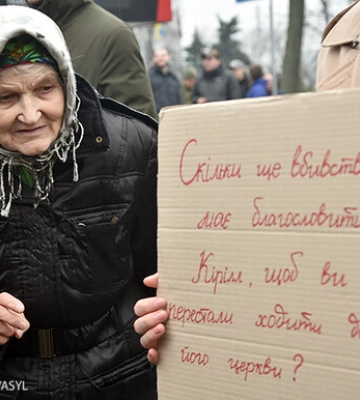 Скільки ще вбивств
має благословити
Кірілл, щоб ви
перестали ходити до
його церкви?
VASYL